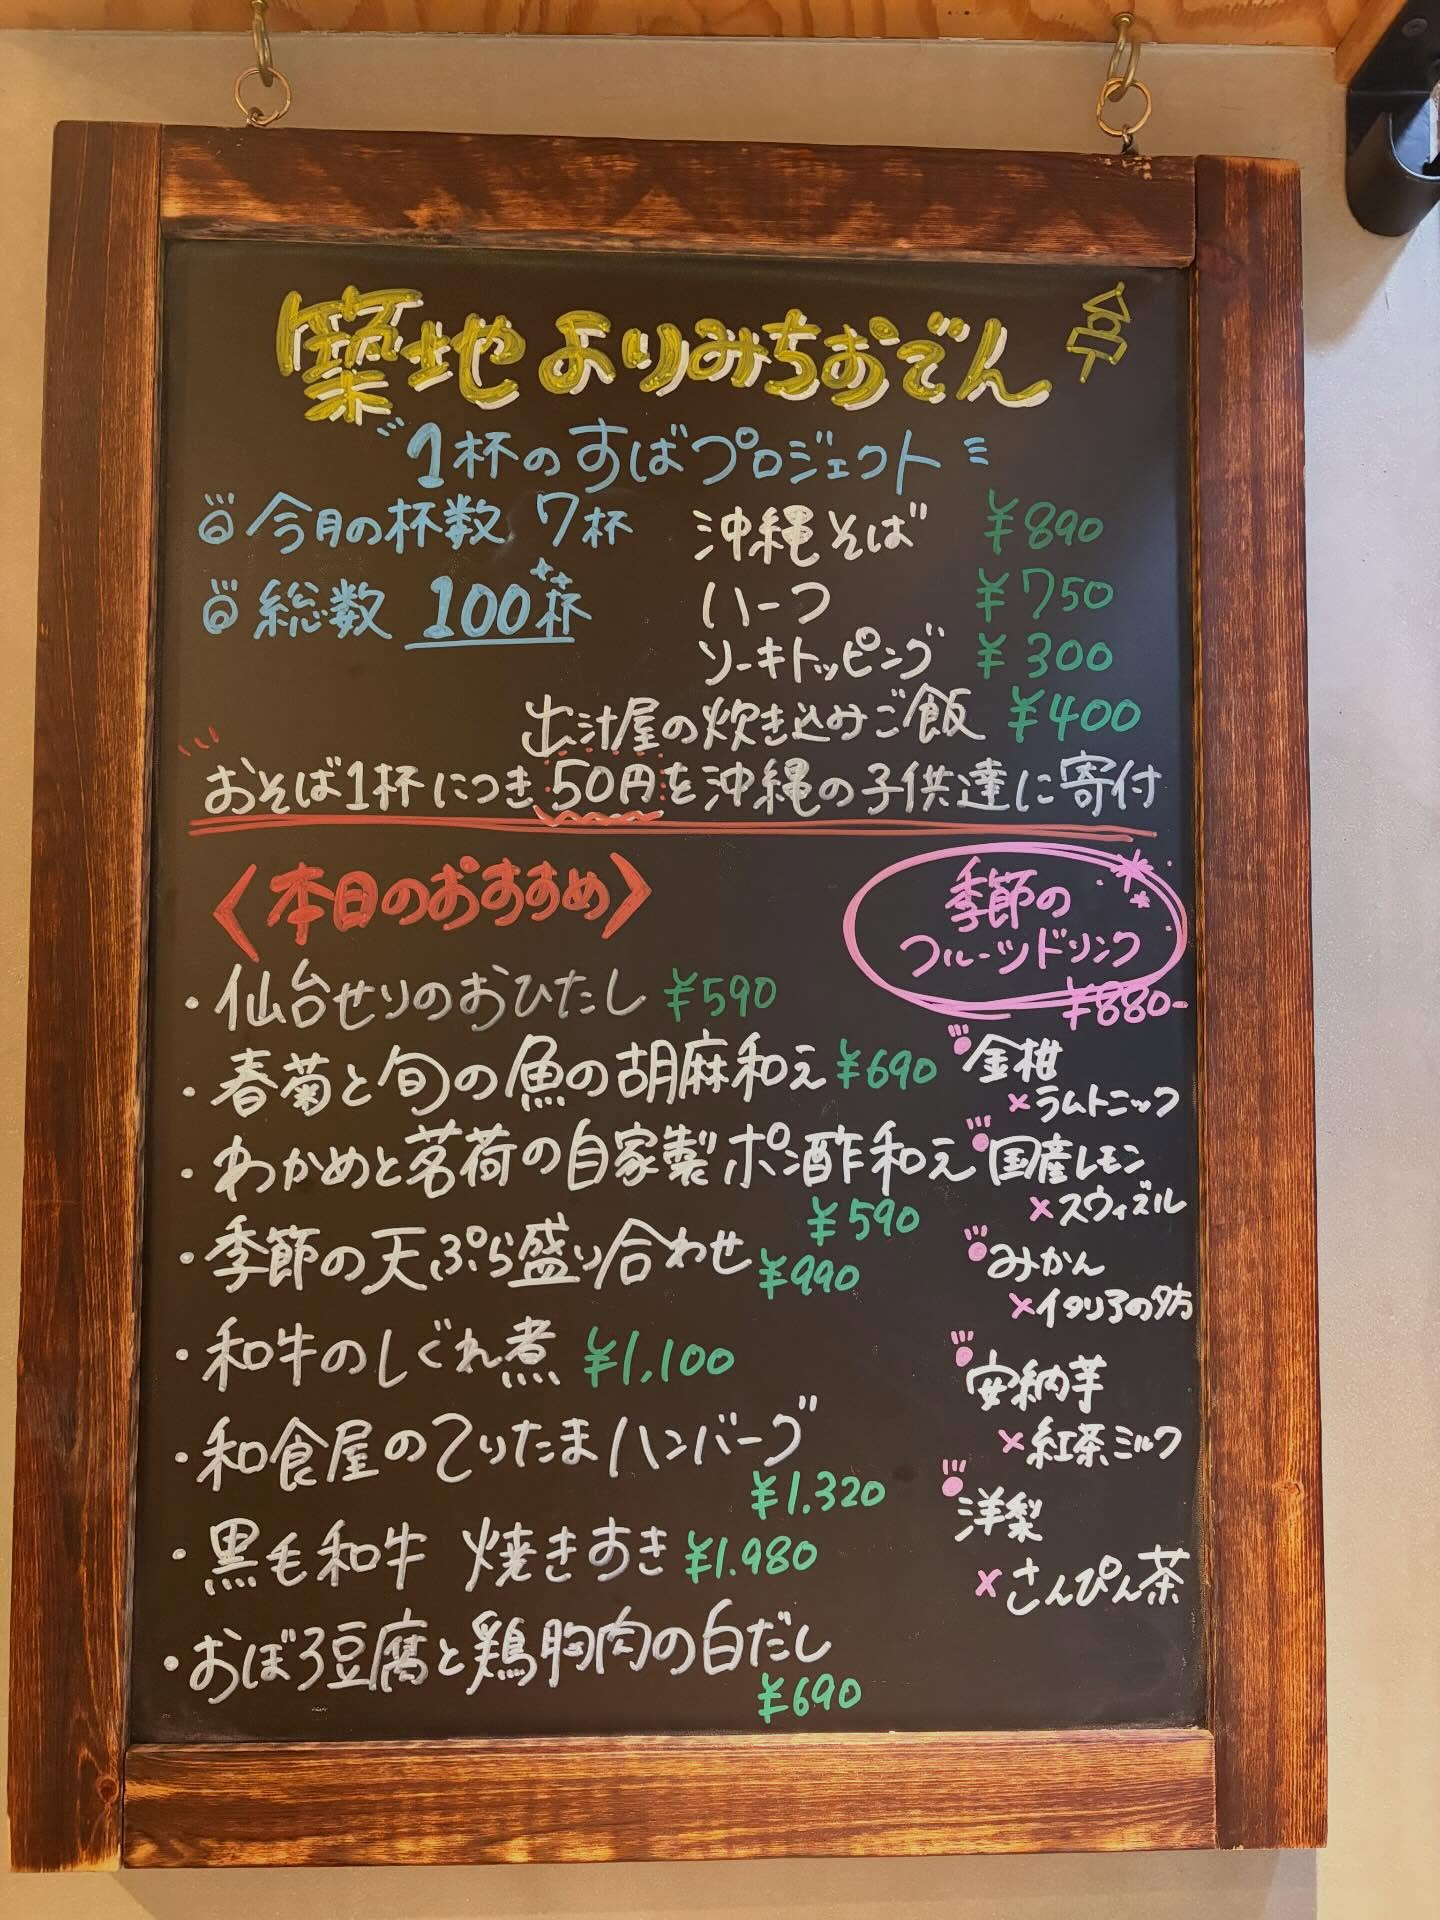 築地よりみちおでん
1杯のすばプロジェクト
今月の杯数 7杯
総数 100杯
沖縄そば ¥890
ハーフ ¥750
ソーキトッピング ¥300
出汁屋の炊き込みご飯 ¥400
おそば1杯につき50円を沖縄の子供達に寄付
〈本日のおすすめ〉
・仙台せりのおひたし ¥590
・春菊と旬の魚の胡麻和え ¥690
・わかめと茗荷の自家製ポン酢和え
¥590
・季節の天ぷら盛り合わせ ¥990
・和牛のしぐれ煮 ¥1,100
・和食屋のてりたまハンバーグ
¥1.320
・黒毛和牛 焼きすき ¥1.980
・おぼろ豆腐と鶏胸肉の白だし
¥690
季節の
フルーツドリンク
¥880-
金柑
×ラムトニック
国産レモン
×スウィズル
みかん
×イタリアの夕方
安納芋
×紅茶ミルク
洋梨
×さんぴん茶